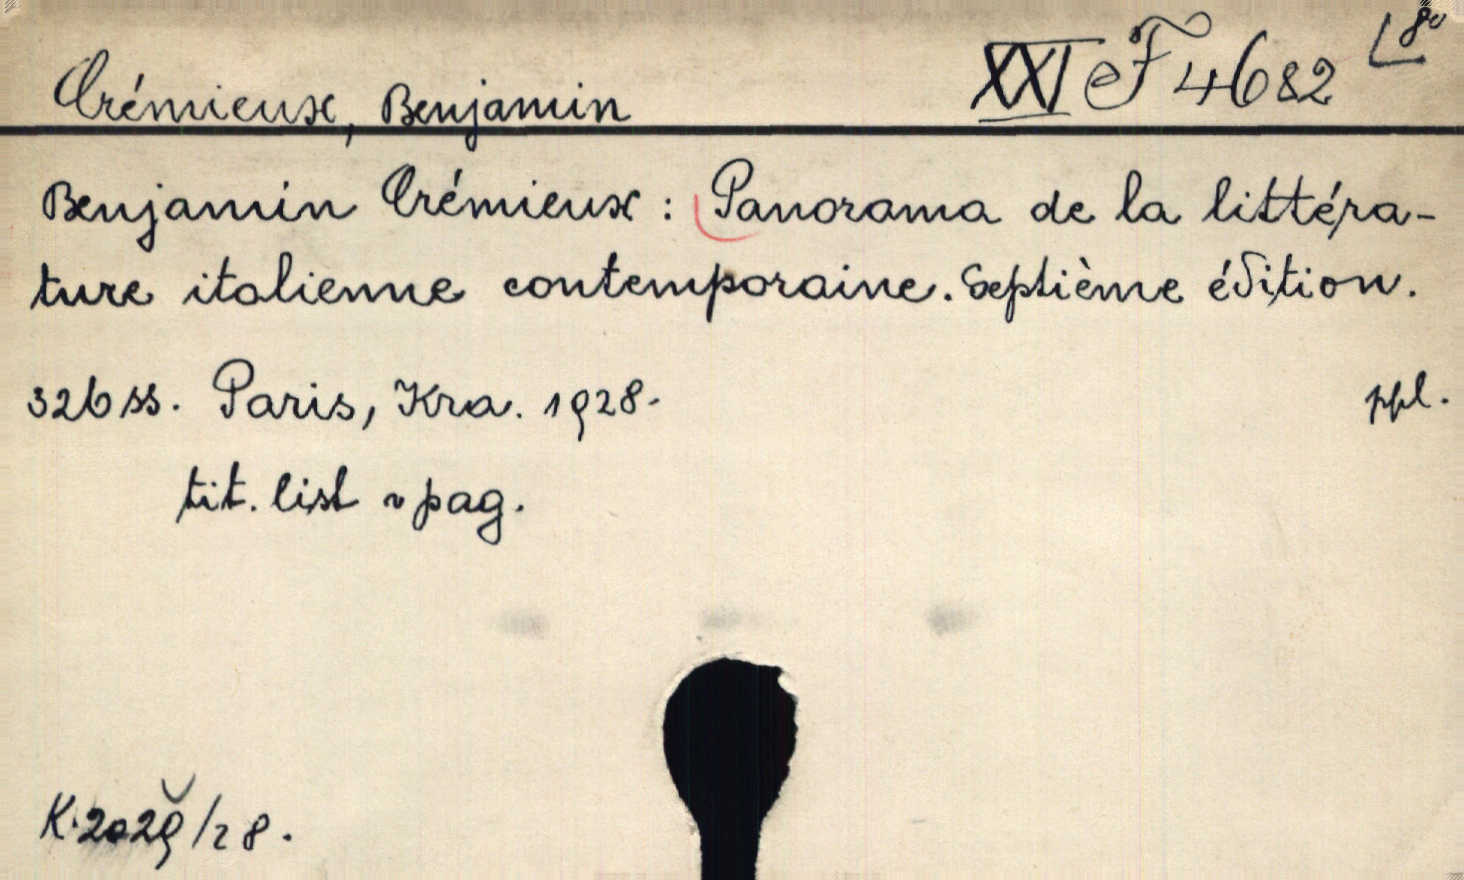 Crémieux, Benjamin XXI eF 4682 8°
Benjamin Crémieux: Panorama de la littéra-
ture italienne contemporaine. Septième édition.
326 ss. Paris, Kra. 1928. ppl.
tit. list v pag.
K. 2029/28.